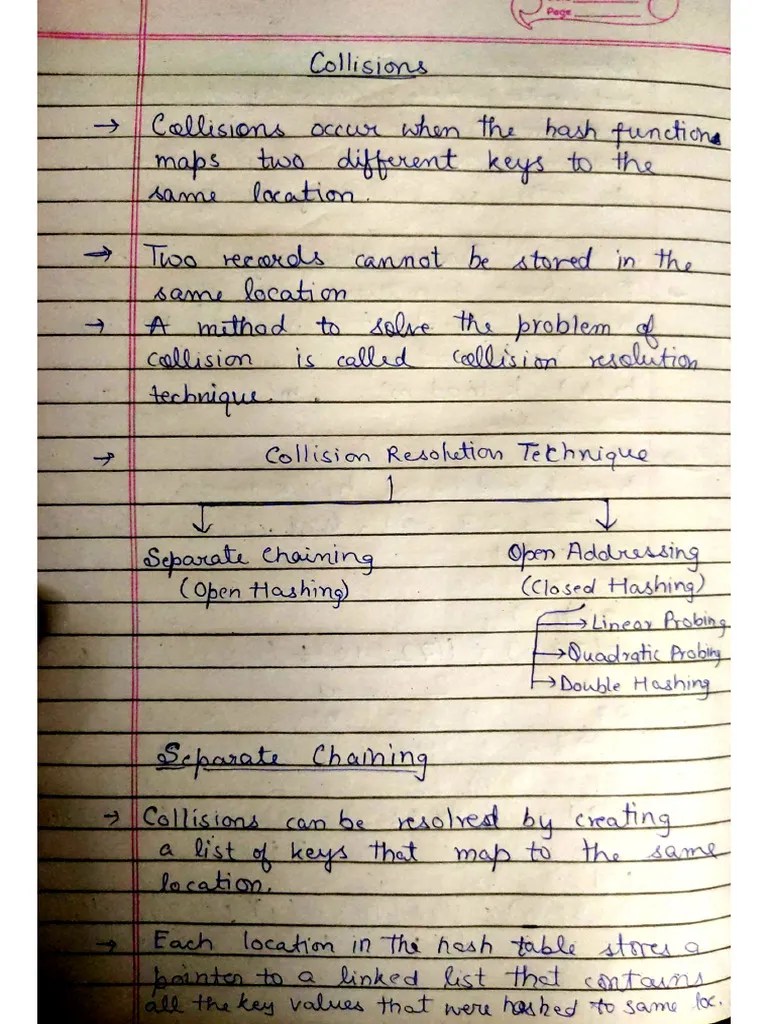 Page
Collisions
→ Collisions occur when the hash functions
maps two different keys to the
same location.
→ Two records cannot be stored in the
same location
→ A method to solve the problem of
collision is called collision resolution
technique.
→ Collision Resolution Technique
Separate Chaining
(Open Hashing)
Open Addressing
(Closed Hashing)
→ Linear Probing
→ Quadratic Probing
→ Double Hashing
Separate Chaining
→ Collisions can be resolved by creating
a list of keys that map to the same
location.
→ Each location in the hash table stores a
pointer to a linked list that contains
all the key values that were hashed to same loc.